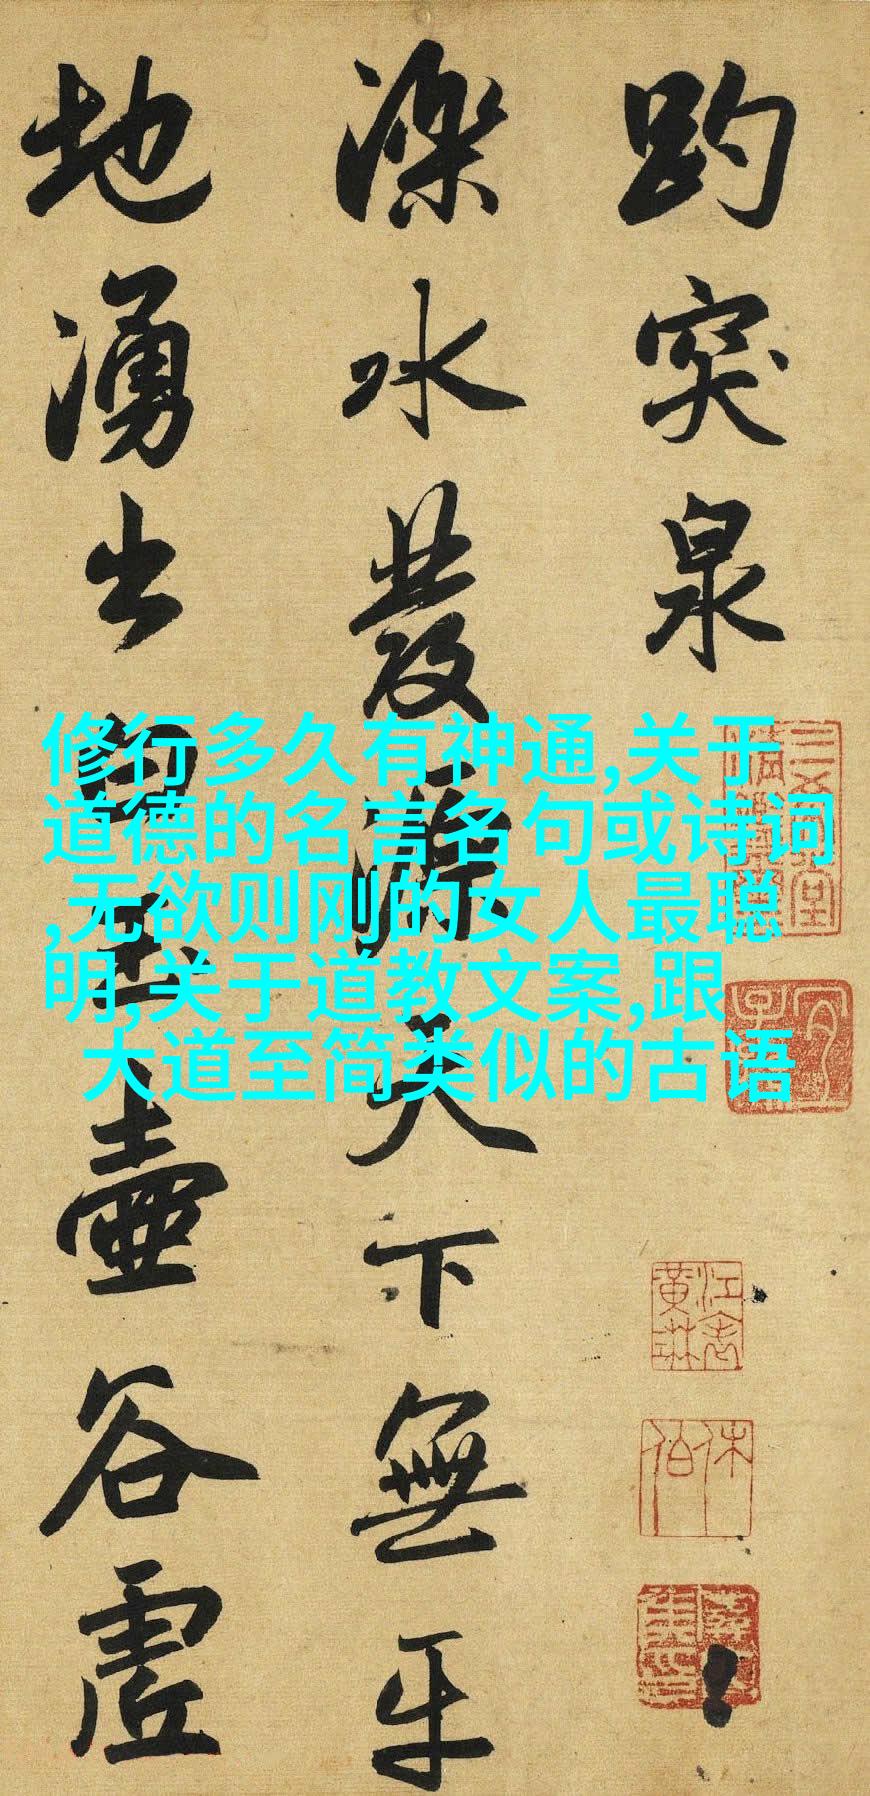 趵突泉
濼水發源天下無平
地湧出白玉壺谷虛
修行多久有神通,关于
道德的名言名句或诗词
,无欲则刚的女人最聪
明,关于道教文案,跟
大道至简类似的古语